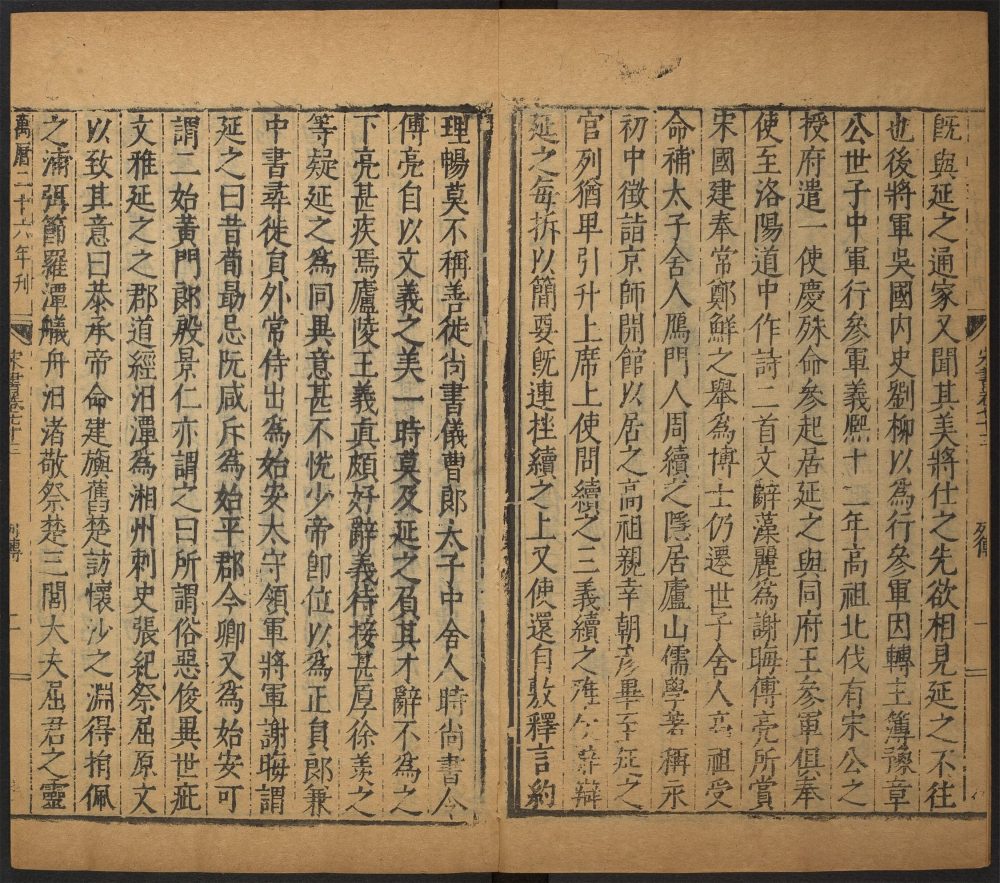 既與延之通家又聞其美將仕之先欲相見延之不往
也後將軍吳國内史劉柳以為行參軍因轉主簿豫章
公世子中軍行參軍義熙十二年高祖北伐有宋公之
授府遣一使慶殊命參起居延之與同府王參軍俱奉
使至洛陽道中作詩二首文辭藻麗為謝晦傅亮所賞
宋國建奉常鄭鮮之舉為博士仍遷世子舍人高祖受
命補太子舍人鴈門人周續之隱居廬山儒學著稱永
初中徵詣京師開館以居之高祖親幸朝彥畢至延之
官列猶卑引升上席上使問續之三義續之雅仗辭辯
延之每折以簡要既連挫續之上又使還自敷釋言約
宋書卷七十三
列傳
一
理暢莫不稱善徙尚書儀曹郎太子中舍人時尚書令
傅亮自以文義之美一時莫及延之負其才辭不為之
下亮甚疾焉廬陵王義真頗好辭義待接甚厚徐羨之
等疑延之為同異意甚不悅少帝即位以為正員郎兼
中書尋徙員外常侍出為始安太守領軍將軍謝晦謂
延之曰昔荀勗忌阮咸斥為始平郡今卿又為始安可
謂二始黃門郎殷景仁亦謂之曰所謂俗惡俊異世疵
文雅延之之郡道經汨潭為湘州刺史張紀祭屈原文
以致其意曰恭承帝命建旟舊楚訪懷沙之淵得捐佩
之浦弭節羅潭艤舟汨渚敬祭楚三閭大夫屈君之靈
萬曆二十六年刊
宋書卷七十三
列傳
二